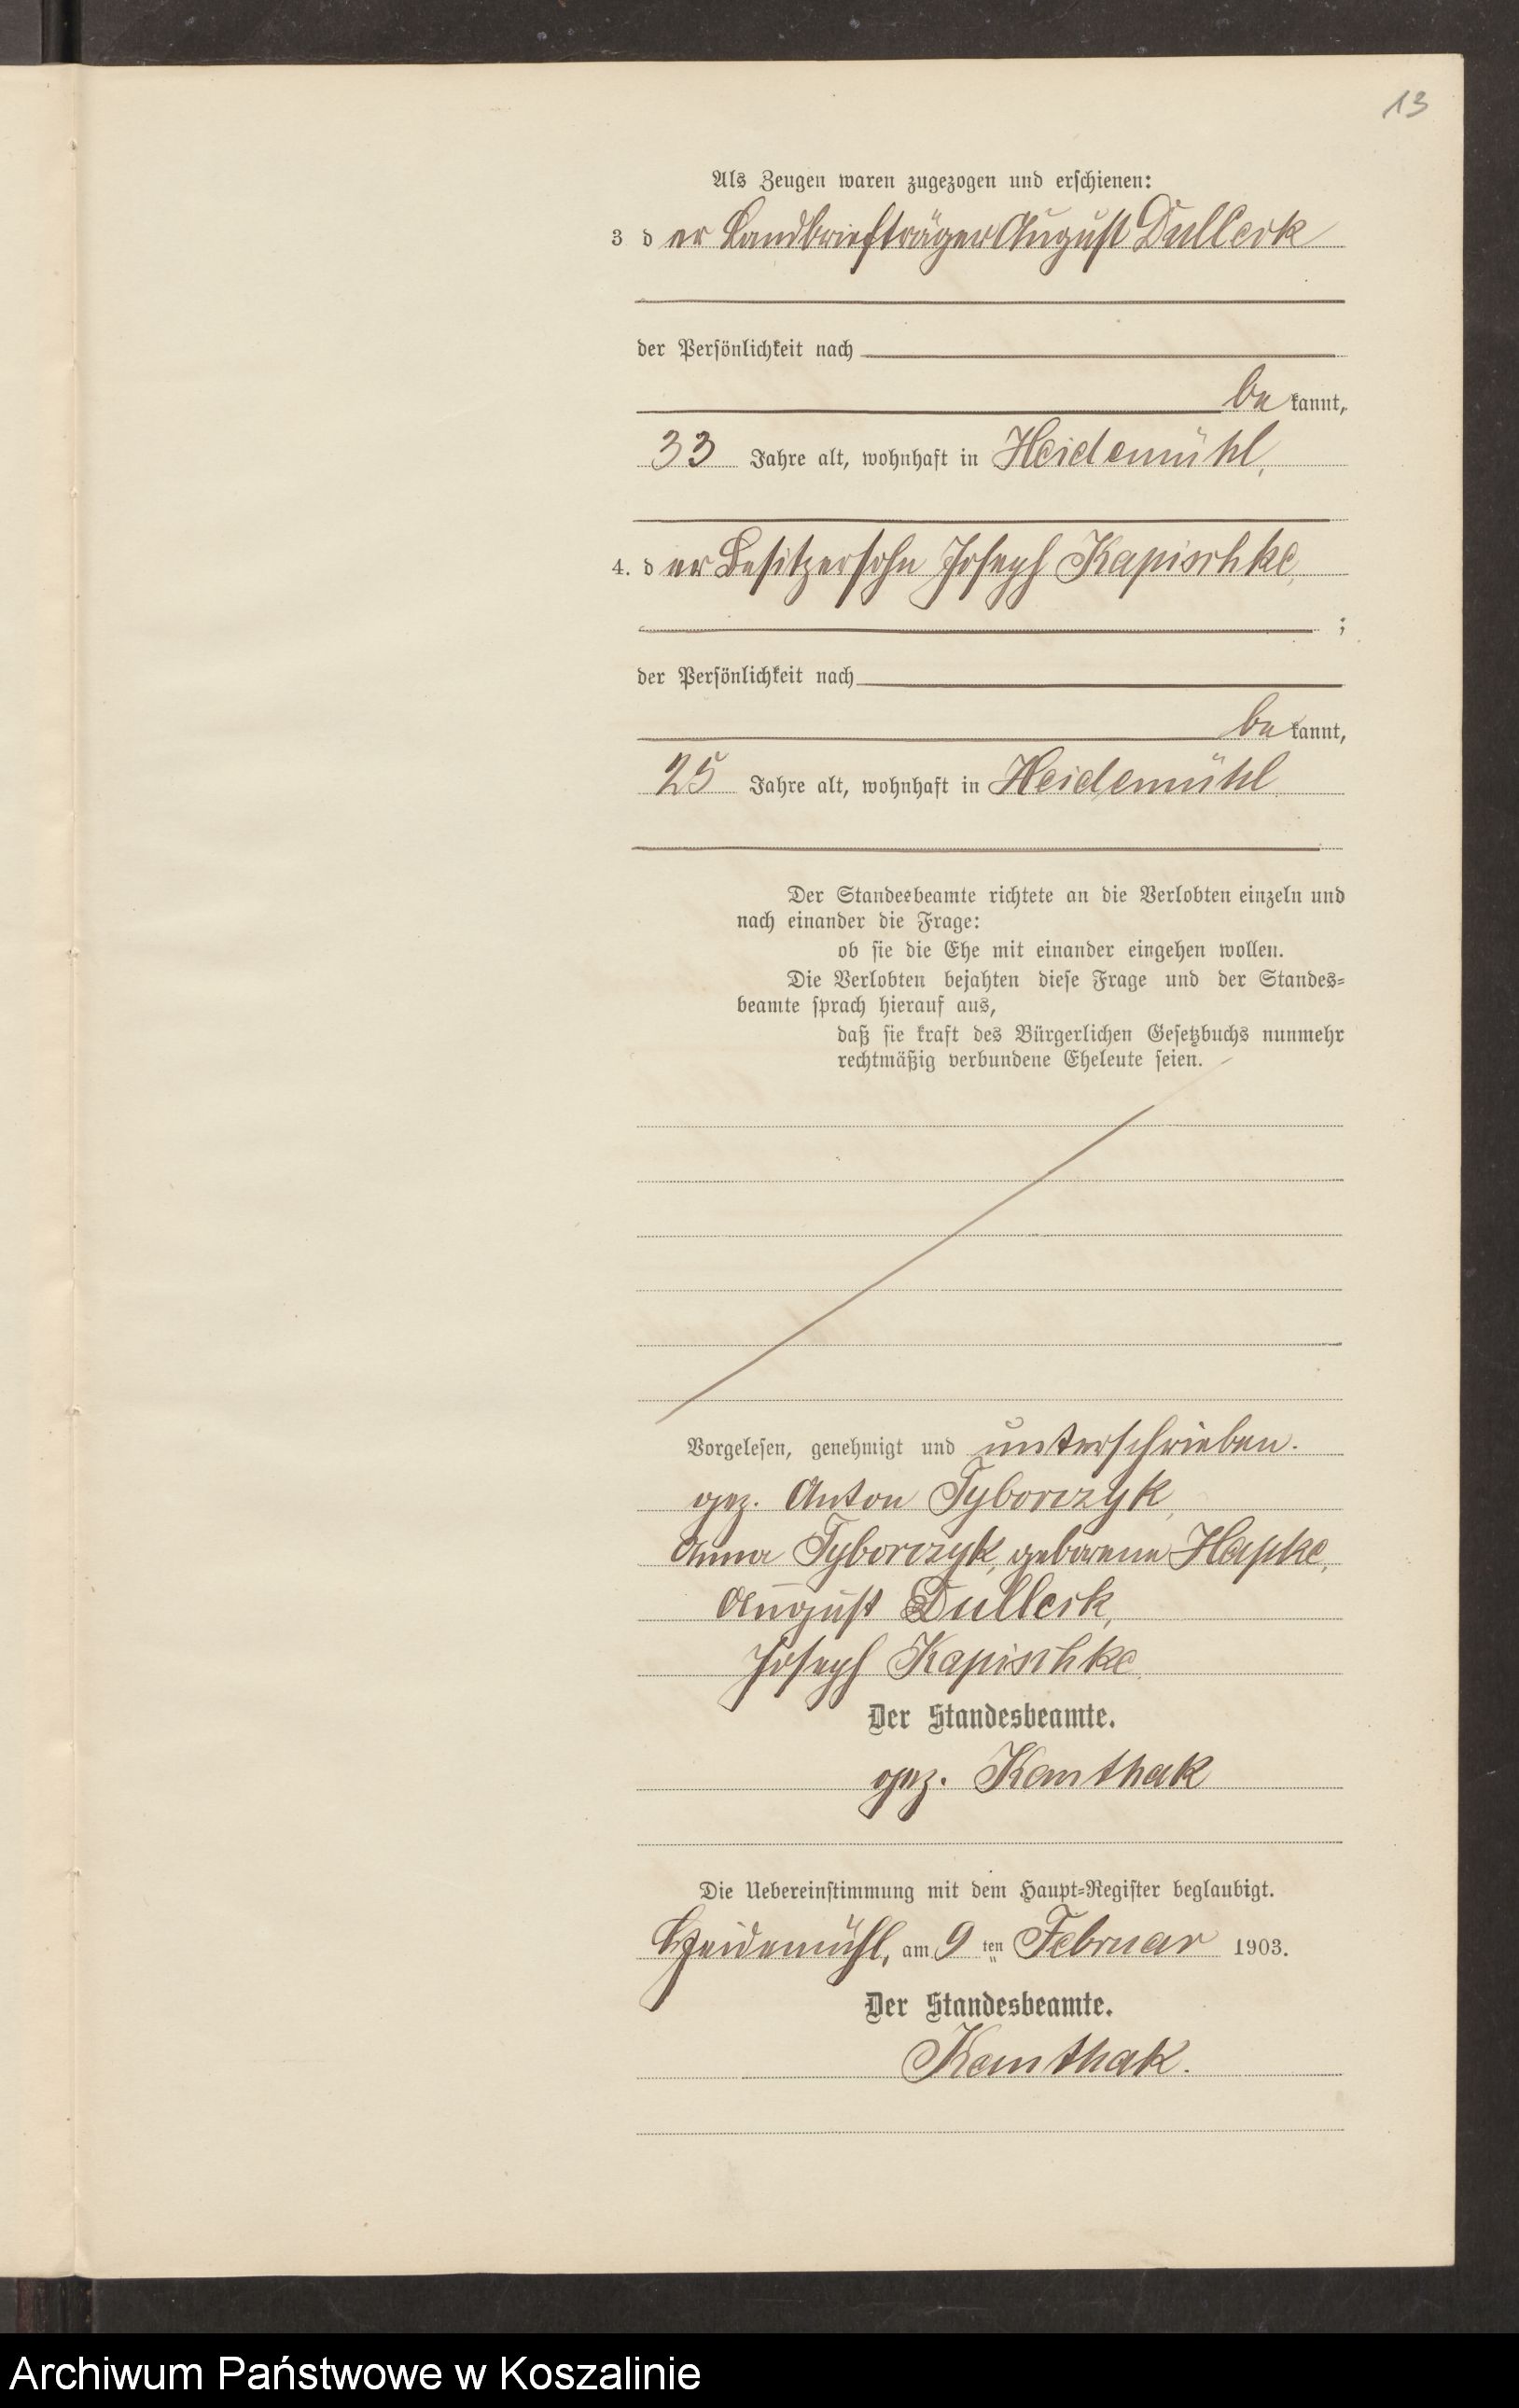 13
Als Zeugen waren zugezogen und erschienen:
3 der Landbriefträger August Dullerk
der Persönlichkeit nach
bekannt,
33 Jahre alt, wohnhaft in Heidemühl,
4. der Besitzersohn Joseph Kapischke,
;
der Persönlichkeit nach
bekannt,
25 Jahre alt, wohnhaft in Heidemühl
Der Standesbeamte richtete an die Verlobten einzeln und
nach einander die Frage:
ob sie die Ehe mit einander eingehen wollen.
Die Verlobten bejahten diese Frage und der Standes-
beamte sprach hierauf aus,
daß sie kraft des Bürgerlichen Gesetzbuchs nunmehr
rechtmäßig verbundene Eheleute seien.
Vorgelesen, genehmigt und unterschrieben.
gez. Anton Tyborczyk,
Anna Tyborczyk, geborene Hapke,
August Dullerk,
Joseph Kapischke.
Der Standesbeamte.
gez. Kamthak
Die Uebereinstimmung mit dem Haupt-Register beglaubigt.
Heidemühl, am 9ten Februar 1903.
Der Standesbeamte.
Kamthak.
Archiwum Państwowe w Koszalinie